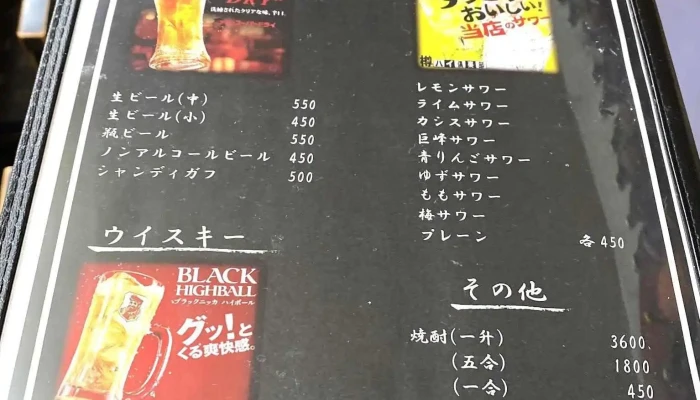 DRY
洗練されたクリアな味、辛口。
生ビール(中) 550
生ビール(小) 450
瓶ビール 550
ノンアルコールビール 450
シャンディガフ 500
ウイスキー
BLACK
HIGHBALL
ブラックニッカ ハイボール
グッ!と
くる爽快感。
おいしい!
当店のサワー
樽ハイ倶楽部
レモンサワー
ライムサワー
カシスサワー
巨峰サワー
青りんごサワー
ゆずサワー
ももサワー
梅サワー
プレーン 各450
その他
焼酎(一升) 3600
(五合) 1800
(一合) 450